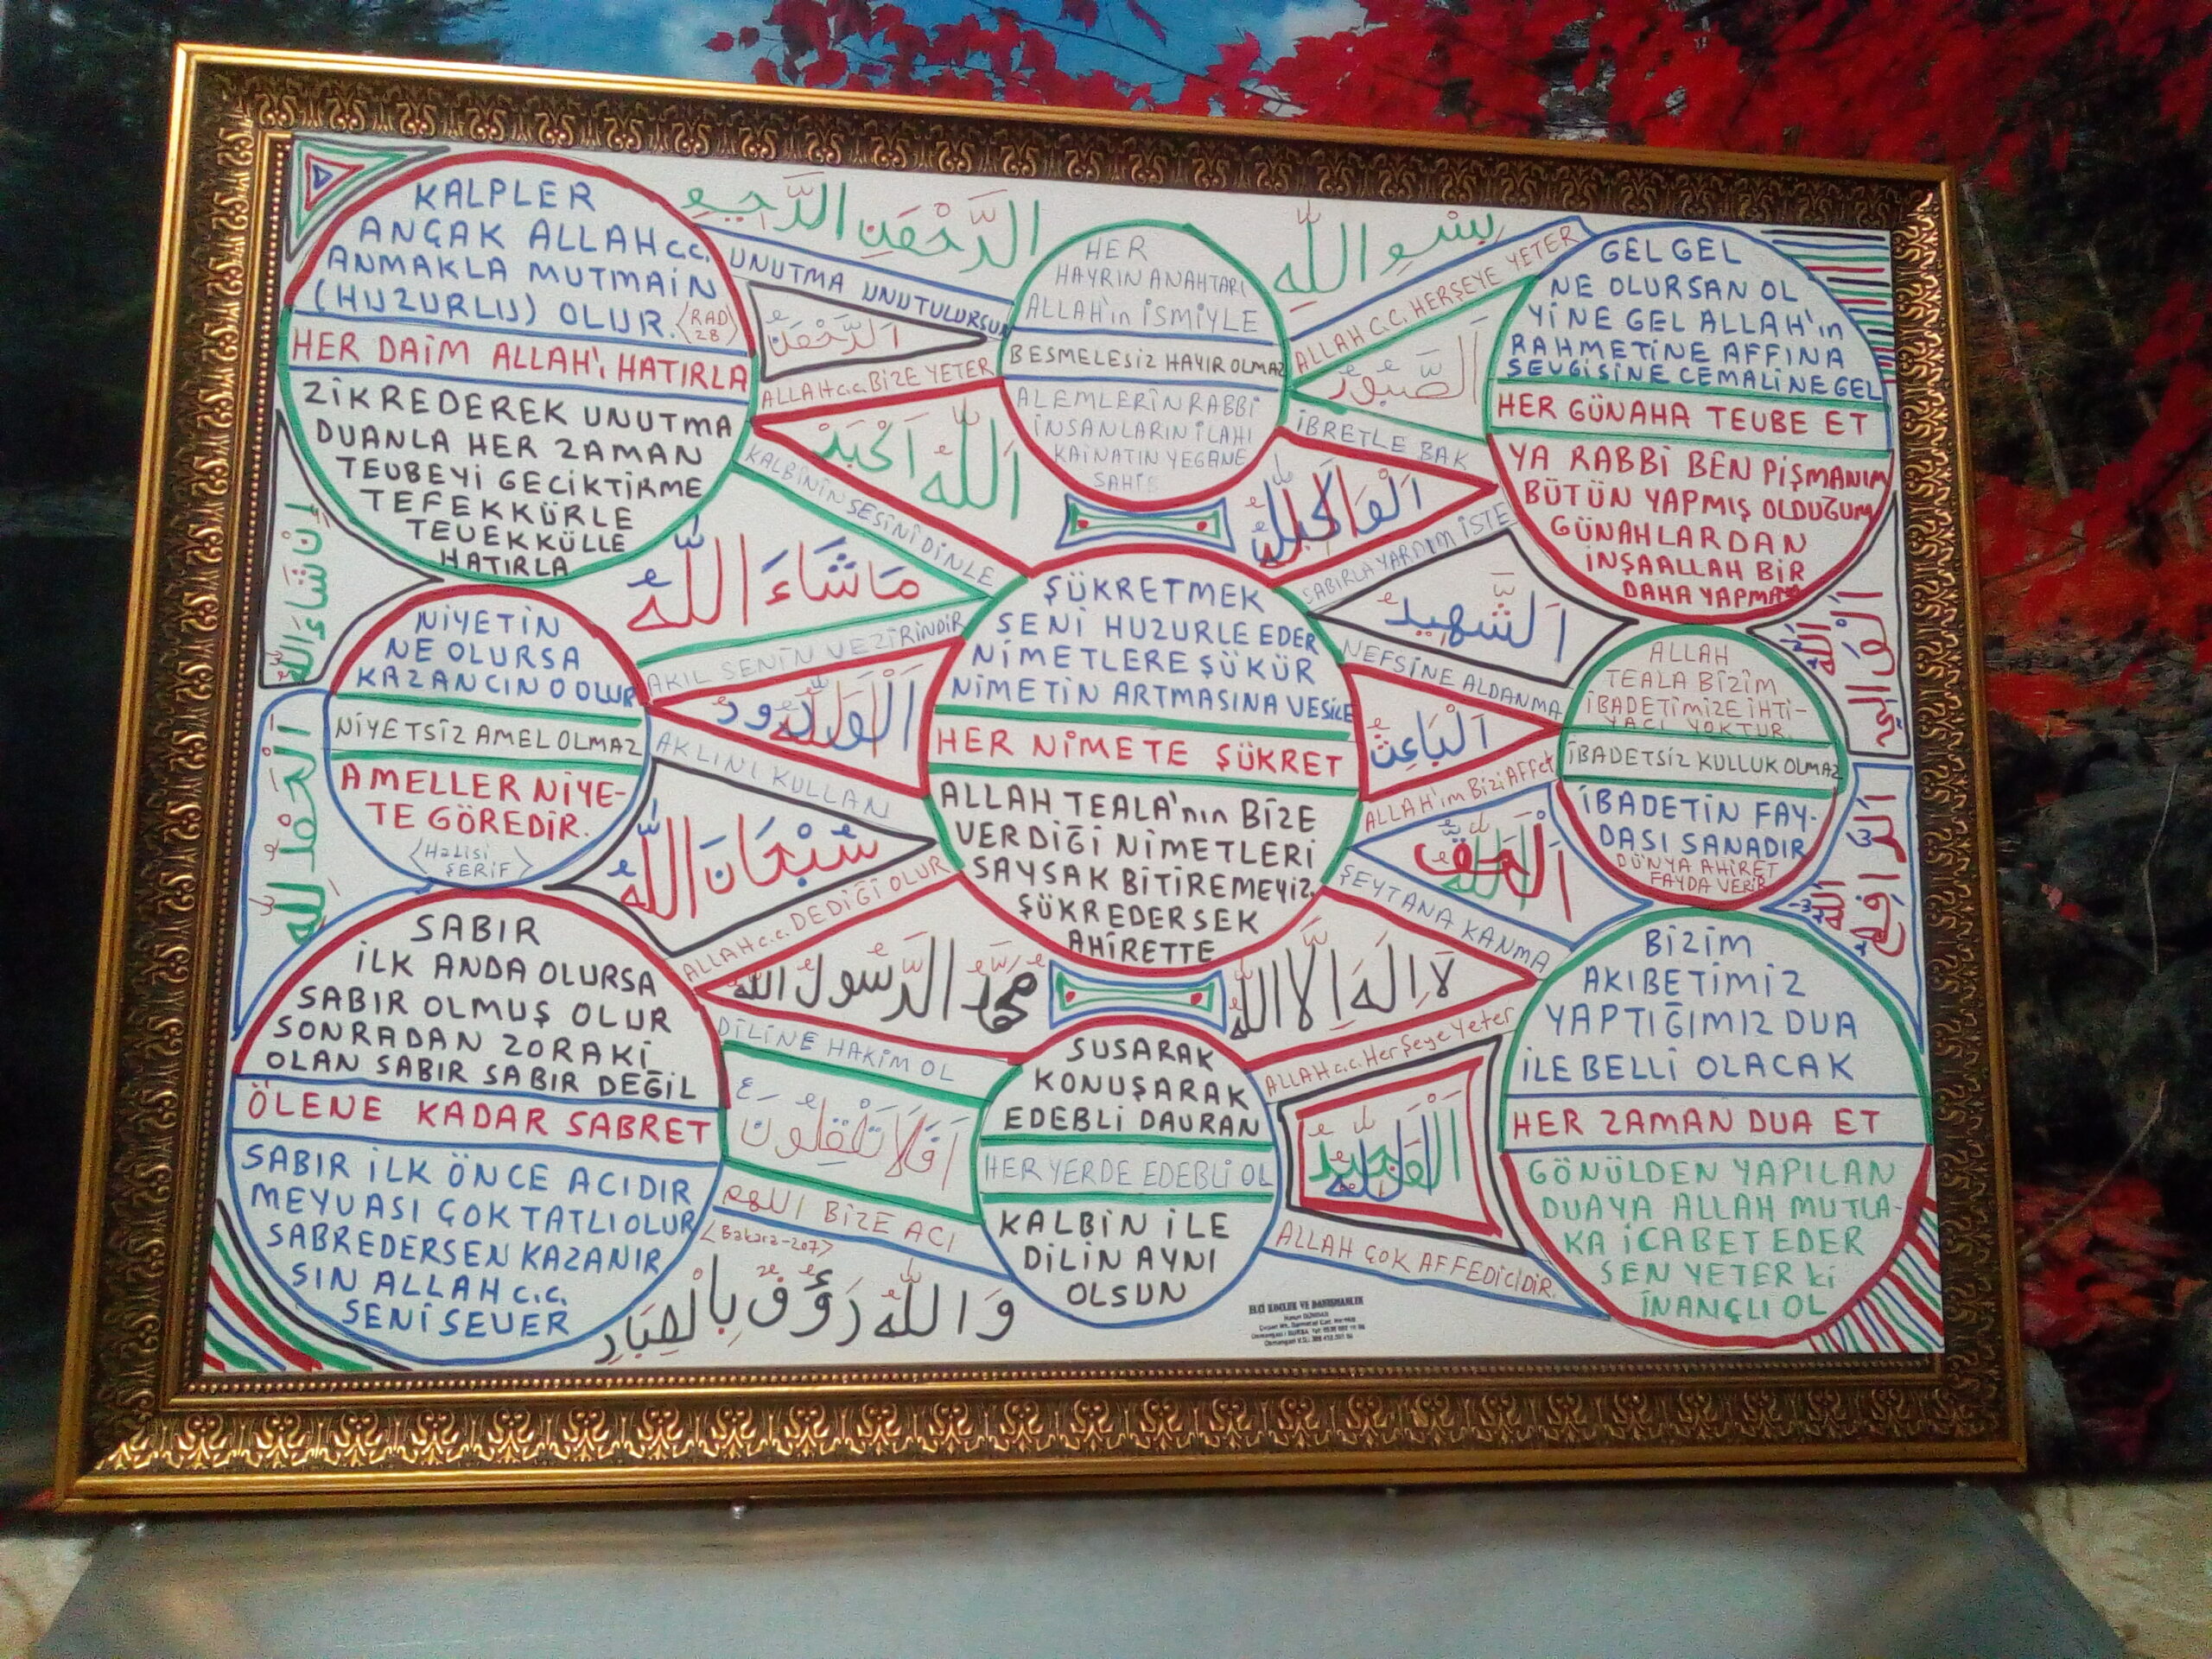 KALPLER
ANÇAK ALLAH c.c.
ANMAKLA MUTMAİN
(HUZURLU) OLUR. (RAD 28)
HER DAİM ALLAH'ı HATIRLA
ZİKREDEREK UNUTMA
DUANLA HER ZAMAN
TEVBEYİ GECİKTİRME
TEFEKKÜRLE
TEVEKKÜLLE
HATIRLA
بسم الله
الرحمن الرحيم
UNUTMA UNUTULURSUN
الرحمن
ALLAH c.c. BİZE YETER
الله اكبر
KALBİNİN SESİNİ DİNLE
HER
HAYRIN ANAHTARI
ALLAH'ın İSMİYLE
BESMELESİZ HAYIR OLMAZ
ALEMLERİN RABBİ
İNSANLARIN İLAHI
KAİNATIN YEGANE
ALLAH C.C. HERŞEYE YETER
الصبور
İBRETLE BAK
SABIRLA YARDIM İSTE
GEL GEL
NE OLURSAN OL
YİNE GEL ALLAH'ın
RAHMETİNE AFFINA
SEVGİSİNE CEMALİNE GEL
HER GÜNAHA TEVBE ET
YA RABBİ BEN PİŞMANIM
BÜTÜN YAPMIŞ OLDUĞUM
GÜNAHLARDAN
İNŞAALLAH BİR
DAHA YAPMA
ان شاء الله
ما شاء الله
AKIL SENİN VEZİRİNDİR
NİYETİN
NE OLURSA
KAZANCIN O OLUR
NİYETSİZ AMEL OLMAZ
AMELLER NİYE-
TE GÖREDİR.
<Halisi ŞERİF>
AKLINI KULLAN
سبحان الله
ALLAH c.c. DEDİĞİ OLUR
ŞÜKRETMEK
SENİ HUZURLE EDER
NİMETLERE ŞÜKÜR
NİMETİN ARTMASINA VESİLE
HER NİMETE ŞÜKRET
ALLAH TEALA'nın BİZE
VERDİĞİ NİMETLERİ
SAYSAK BİTİREMEYİZ.
ŞÜKREDERSEK
AHİRETTE
الشهيد
NEFSİNE ALDANMA
الباعث
ALLAH'ım BİZİ AFFet
ŞEYTANA KANMA
ALLAH
TEALA BİZİM
İBADETİMİZE İHTİ-
YACI YOKTUR.
İBADETSİZ KULLUK OLMAZ
İBADETİN FAY-
DASI SANADIR
DÜNYA AHİRET
FAYDA VERİR
الحمد لله
لا اله الا الله
محمد الرسول الله
SABIR
İLK ANDA OLURSA
SABIR OLMUŞ OLUR
SONRADAN ZORAKİ
OLAN SABIR SABIR DEĞİL
ÖLENE KADAR SABRET
SABIR İLK ÖNCE ACIDIR
MEYVASI ÇOK TATLI OLUR
SABREDERSEN KAZANIR
SIN ALLAH c.c.
SENİ SEVER
DİLİNE HAKİM OL
افلا تعقلون
اللهم BİZE ACI
<Bakara-207>
والله رؤف بالعباد
SUSARAK
KONUŞARAK
EDEBLİ DAVRAN
HER YERDE EDEBLİ OL
KALBİN İLE
DİLİN AYNI
OLSUN
ALLAH c.c. HerŞeye Yeter
ALLAH ÇOK AFFEDİCİDİR.
BİZİM
AKIBETİMİZ
YAPTIĞIMIZ DUA
İLE BELLİ OLACAK
HER ZAMAN DUA ET
GÖNÜLDEN YAPILAN
DUAYA ALLAH MUTLA-
KA İCABET EDER
SEN YETER ki
İNANÇLI OL